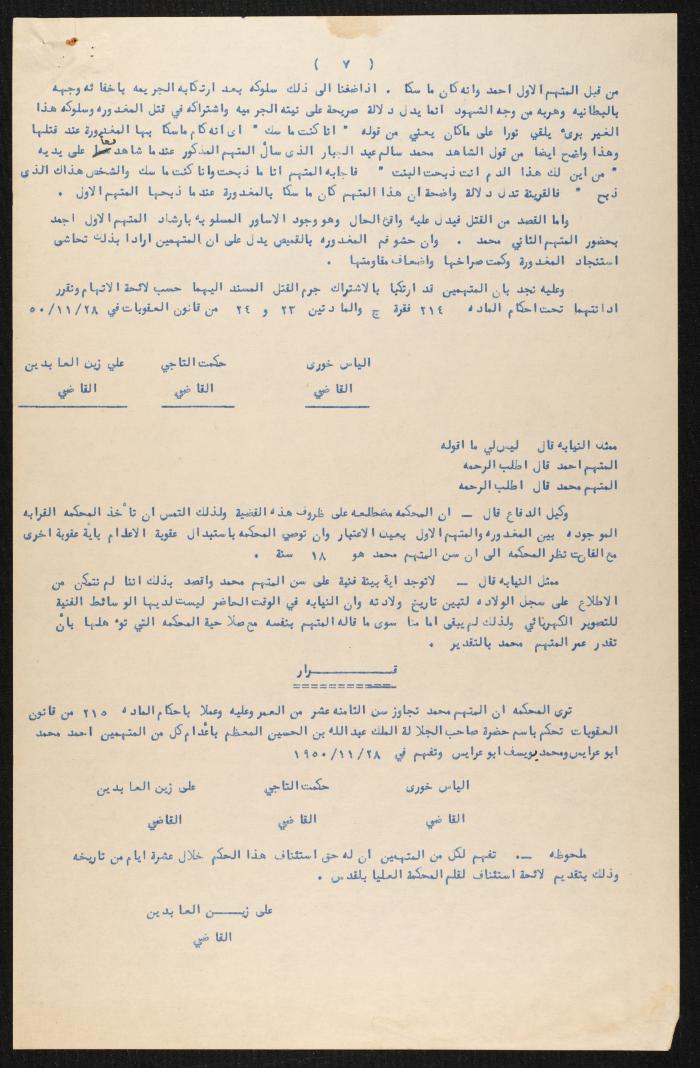 ( ٧ )
من قبل المتهم الاول احمد وانه كان ماسكا . اذا ضفنا الى ذلك سلوكه بعد ارتكابه الجريمه باخفائه وجهه
بالبطانيه وهربه من وجه الشهود انما يدل دلالة صريحة على نيته الجرميه واشتراكه في قتل المغدوره وسلوكه هذا
الغير برئ يلقي نورا على ماكان يعني من قوله " انا كنت ماسك " اى انه كام ماسكا بها المغدورة عند قتلها
وهذا واضح ايضا من قول الشاهد محمد سالم عبد الجبار الذى سأل المتهم المذكور عندما شاهد على يديه
" من اين لك هذا الدم انت ذبحت البنت " فاجابه المتهم انا ما ذبحت وانا كنت ماسك والشخص هذاك الذى
ذبح " فالقرينة تدل دلالة واضحة ان هذا المتهم كان ماسكا بالمغدورة عندما ذبحها المتهم الاول .
واما القصد من القتل فيدل عليه واقع الحال وهو وجود الاساور المسلوبه بارشاد المتهم الاول احمد
بحضور المتهم الثاني محمد . وان حشو فم المغدوره بالقميص يدل على ان المتهمين ارادا بذلك تحاشى
استنجاد المغدورة وكمت صراخها واضعاف مقاومتها .
وعليه نجد بان المتهمين قد ارتكبا بالاشتراك جرم القتل المسند اليهما حسب لائحة الاتهام ونقرر
ادانتهما تحت احكام الماده ٢١٤ فقرة ج والمادتين ٢٣ و ٢٤ من قانون العقوبات في ٥٠/١١/٢٨
الياس خورى حكمت التاجي علي زين العابدين
القاضي القاضي القاضي
ممثل النيابه قال ليس لي ما اقوله
المتهم احمد قال اطلب الرحمه
المتهم محمد قال اطلب الرحمه
وكيل الدفاع قال ــ ان المحكمه مضطلعه على ظروف هذه القضية ولذلك التمس ان تأخذ المحكمه القرابه
الموجوده بين المغدوره والمتهم الاول بعين الاعتبار وان توصي المحكمه باستبدال عقوبة الاعدام باية عقوبة اخرى
مع الفات نظر المحكمه الى ان سن المتهم محمد هو ١٨ سنة .
ممثل النيابه قال ــ لاتوجد اية بينة فنية على سن المتهم محمد واقصد بذلك اننا لم نتمكن من
الاطلاع على سجل الولاده لتبين تاريخ ولادته وان النيابه في الوقت الحاضر ليست لديها الوسائط الفنية
للتصوير الكهربائي ولذلك لم يبقى امامنا سوى ما قاله المتهم بنفسه مع صلاحية المحكمه التي توءهلها بأن
تقدر عمر المتهم محمد بالتقدير .
قــــــــــرار
ترى المحكمه ان المتهم محمد تجاوز سن الثامنه عشر من العمر وعليه وعملا باحكام الماده ٢١٥ من قانون
العقوبات تحكم باسم حضرة صاحب الجلالة الملك عبدالله بن الحسين المعظم باعدام كل من المتهمين احمد محمد
ابو عرايس ومحمد يوسف ابو عرايس وتفهم في ١٩٥٠/١١/٢٨
الياس خورى حكمت التاجي على زين العابدين
القاضي القاضي القاضي
ملحوظه ــ. تفهم لكل من المتهمين ان له حق استئناف هذا الحكم خلال عشرة ايام من تاريخه
وذلك بتقديم لائحة استئناف لقلم المحكمة العليا بلقدس .
على زيــــن العابدين
القاضي